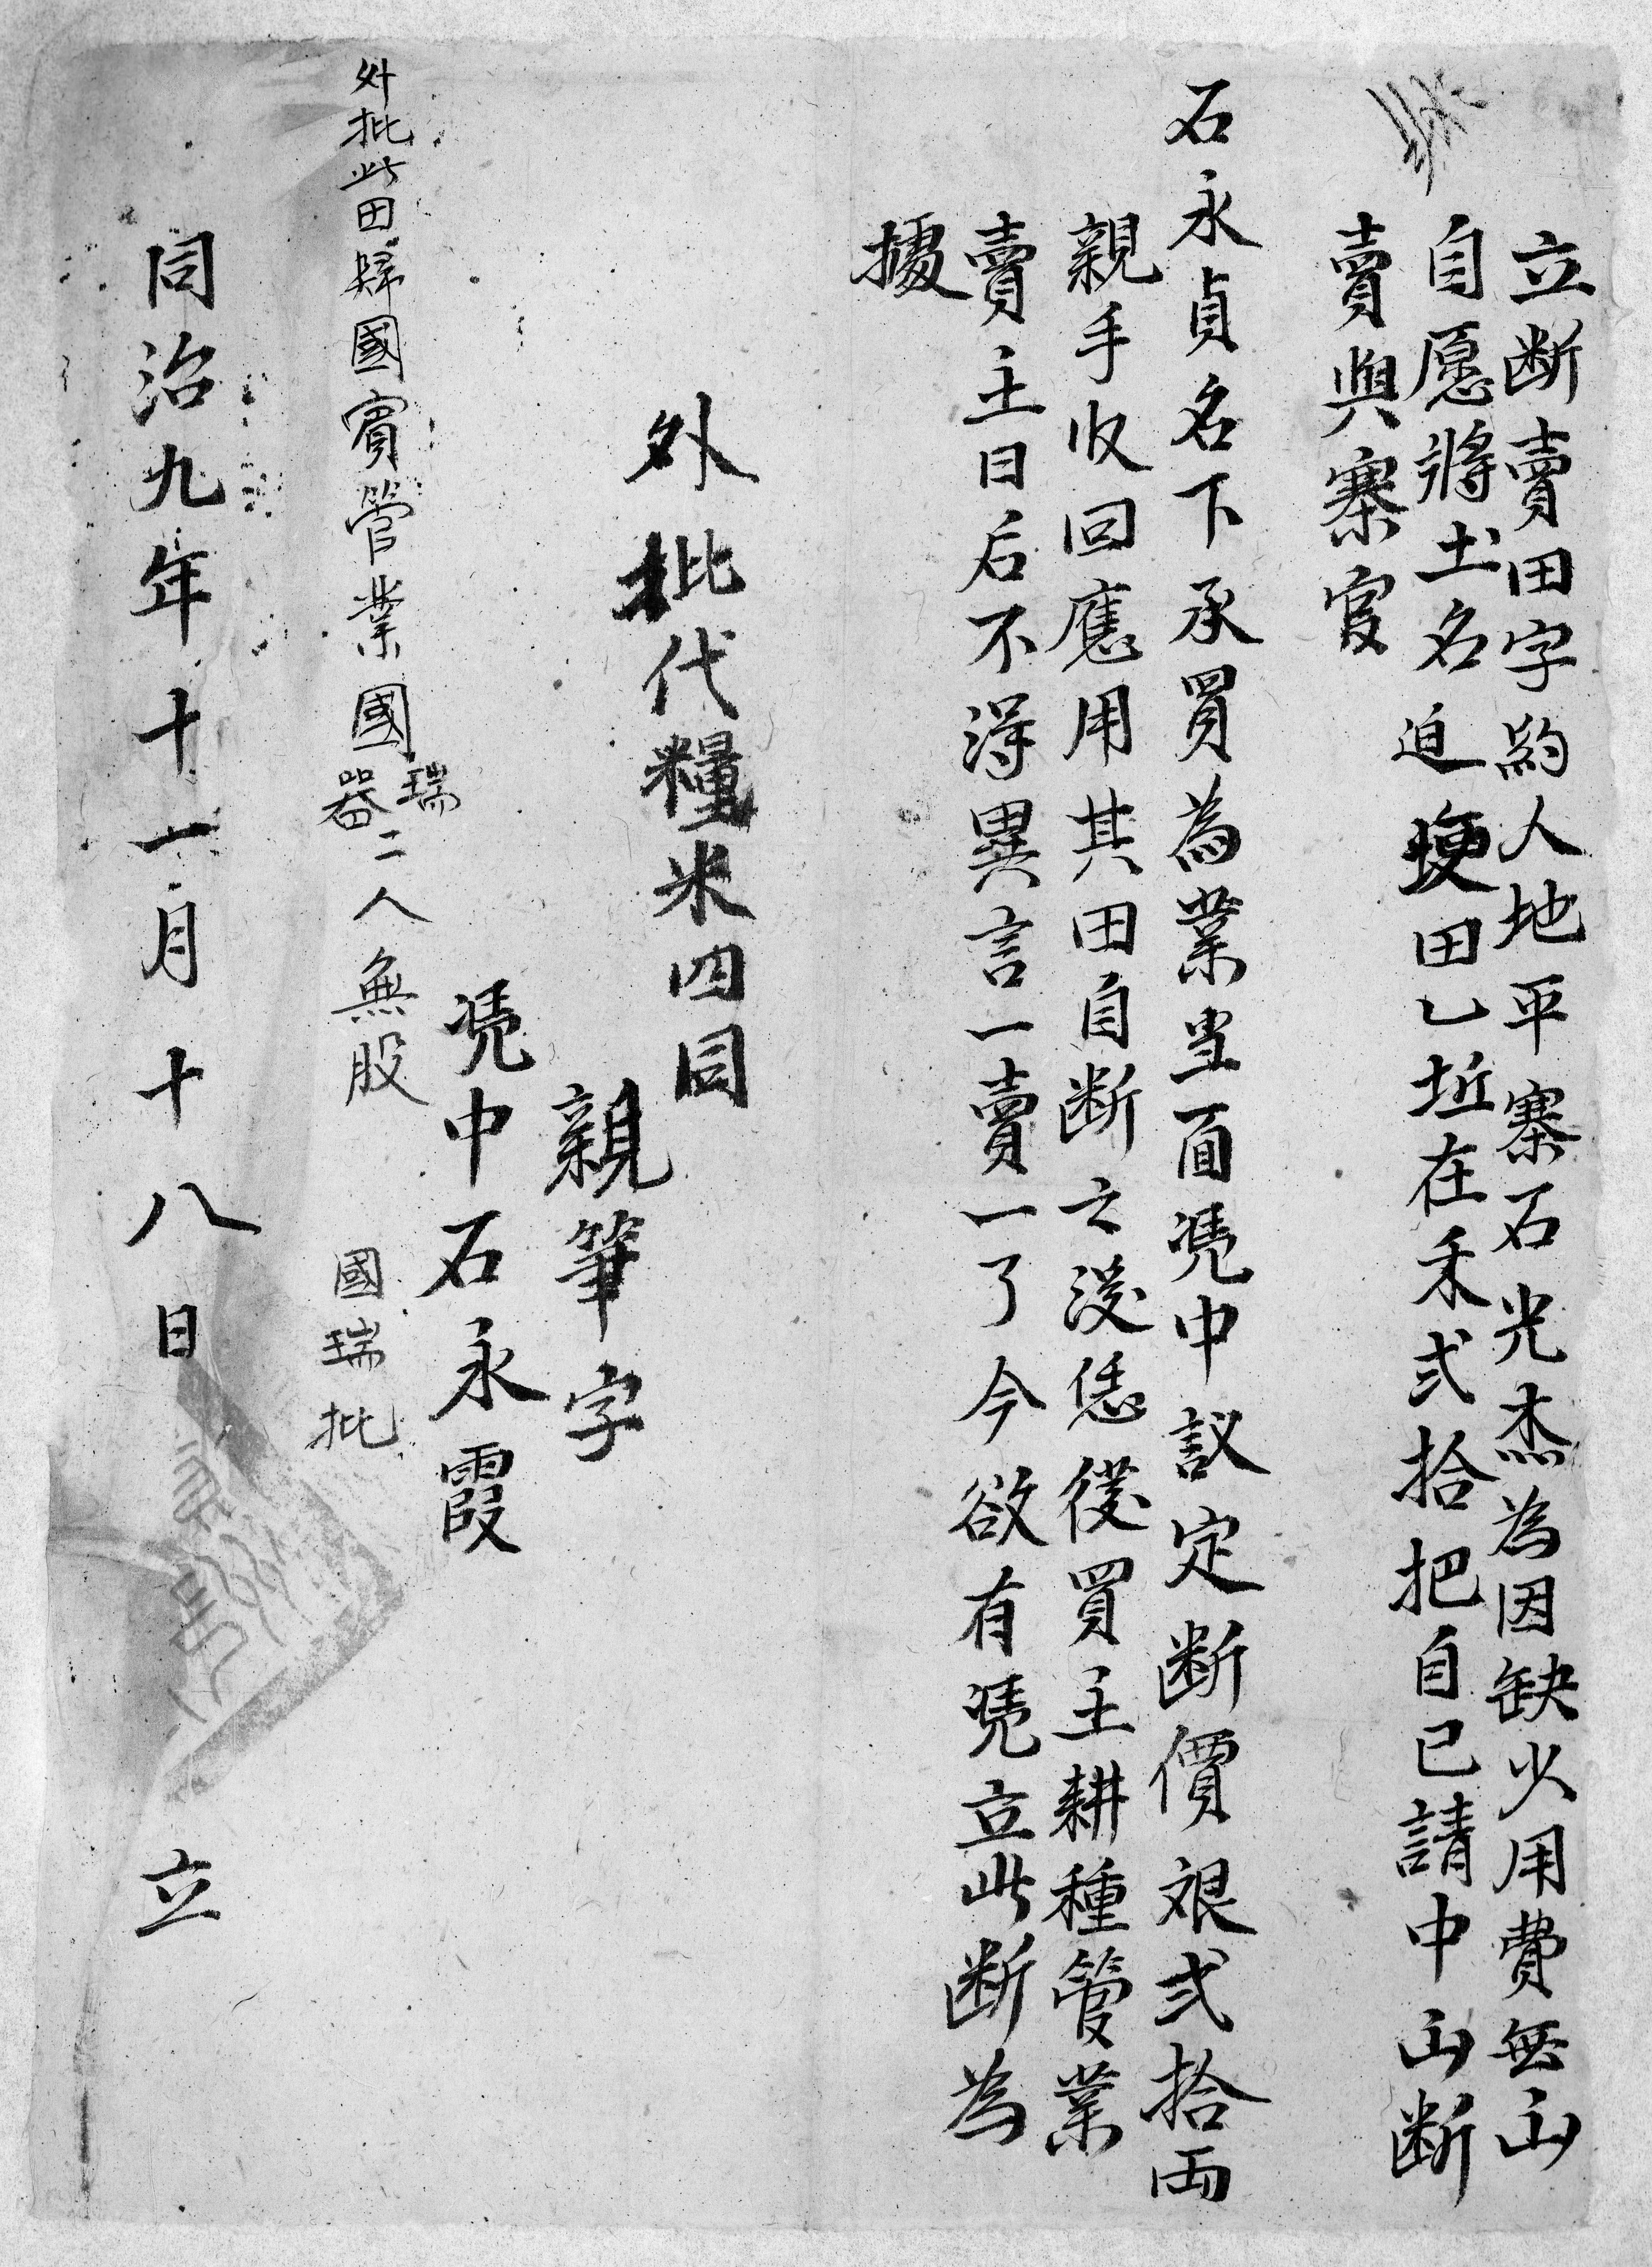 立断賣田字約人地平寨石光杰為因缺少用費無出
自愿將土名迫埂田乙坵在禾弍拾把自己請中出断
賣與寨官
石永貞名下承買為業当面凴中議定断價艮弍拾両
親手收回應用其田自断之後恁從買主耕種管業
賣主日后不得異言一賣一了今欲有凴立此断為
據
外批代糧米四同
親筆字
凴中石永霞
外批此田歸國賓管業國瑞器二人無股
國瑞批
同治九年十一月十八日 立